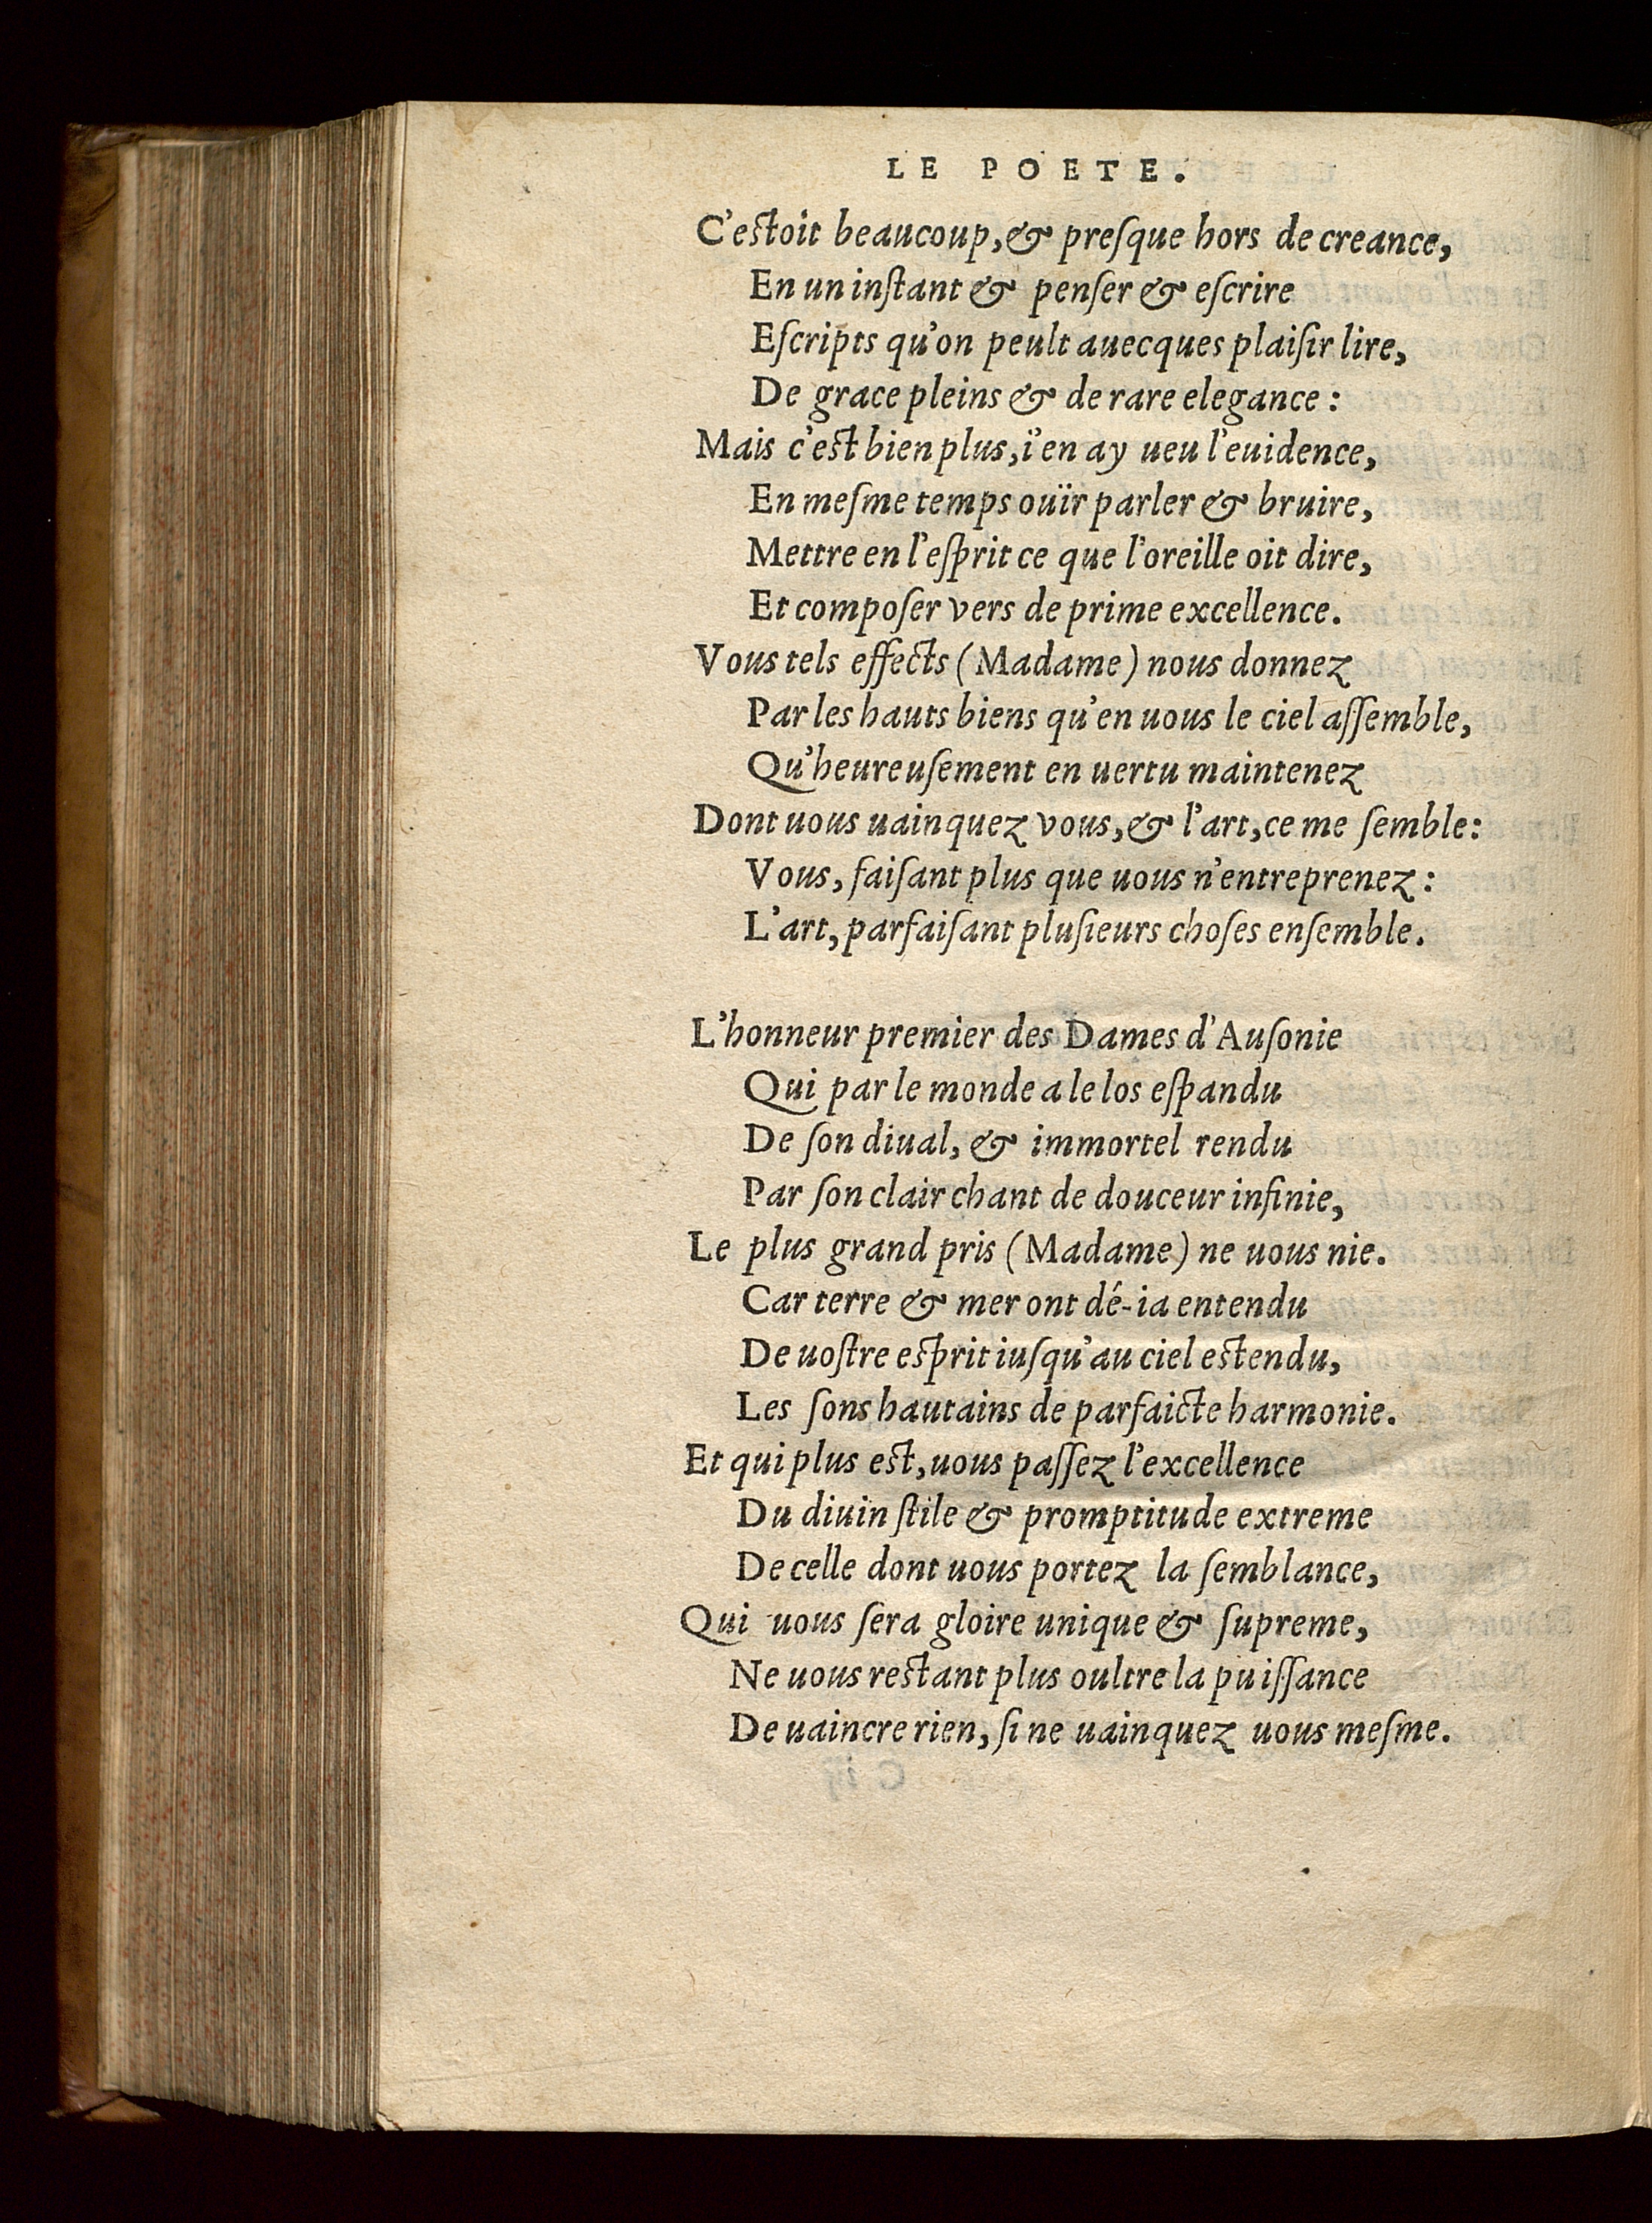 LE POETE.
C'estoit beaucoup, & preſque hors de creance,
En un inſtant & penſer & eſcrire
Eſcripts qu'on peult auecques plaiſir lire,
De grace pleins & de rare elegance :
Mais c'est bien plus, i'en ay ueu l'euidence,
En meſme temps ouïr parler & bruire,
Mettre en l'eſprit ce que l'oreille oit dire,
Et compoſer vers de prime excellence.
Vous tels effects (Madame) nous donnez
Par les hauts biens qu'en uous le ciel aſſemble,
Qu'heureuſement en uertu maintenez
Dont uous uainquez vous, & l'art, ce me ſemble:
Vous, faiſant plus que uous n'entreprenez :
L'art, parfaiſant pluſieurs choſes enſemble.
L'honneur premier des Dames d'Auſonie
Qui par le monde a le los eſpandu
De ſon diual, & immortel rendu
Par ſon clair chant de douceur infinie,
Le plus grand pris (Madame) ne uous nie.
Car terre & mer ont dé-ia entendu
De uoſtre esprit iuſqu'au ciel estendu,
Les ſons hautains de parfaicte harmonie.
Et qui plus est, uous paſſez l'excellence
Du diuin ſtile & promptitude extreme
De celle dont uous portez la ſemblance,
Qui uous ſera gloire unique & ſupreme,
Ne uous restant plus oultre la puiſſance
De uaincre rien, ſi ne uainquez uous meſme.